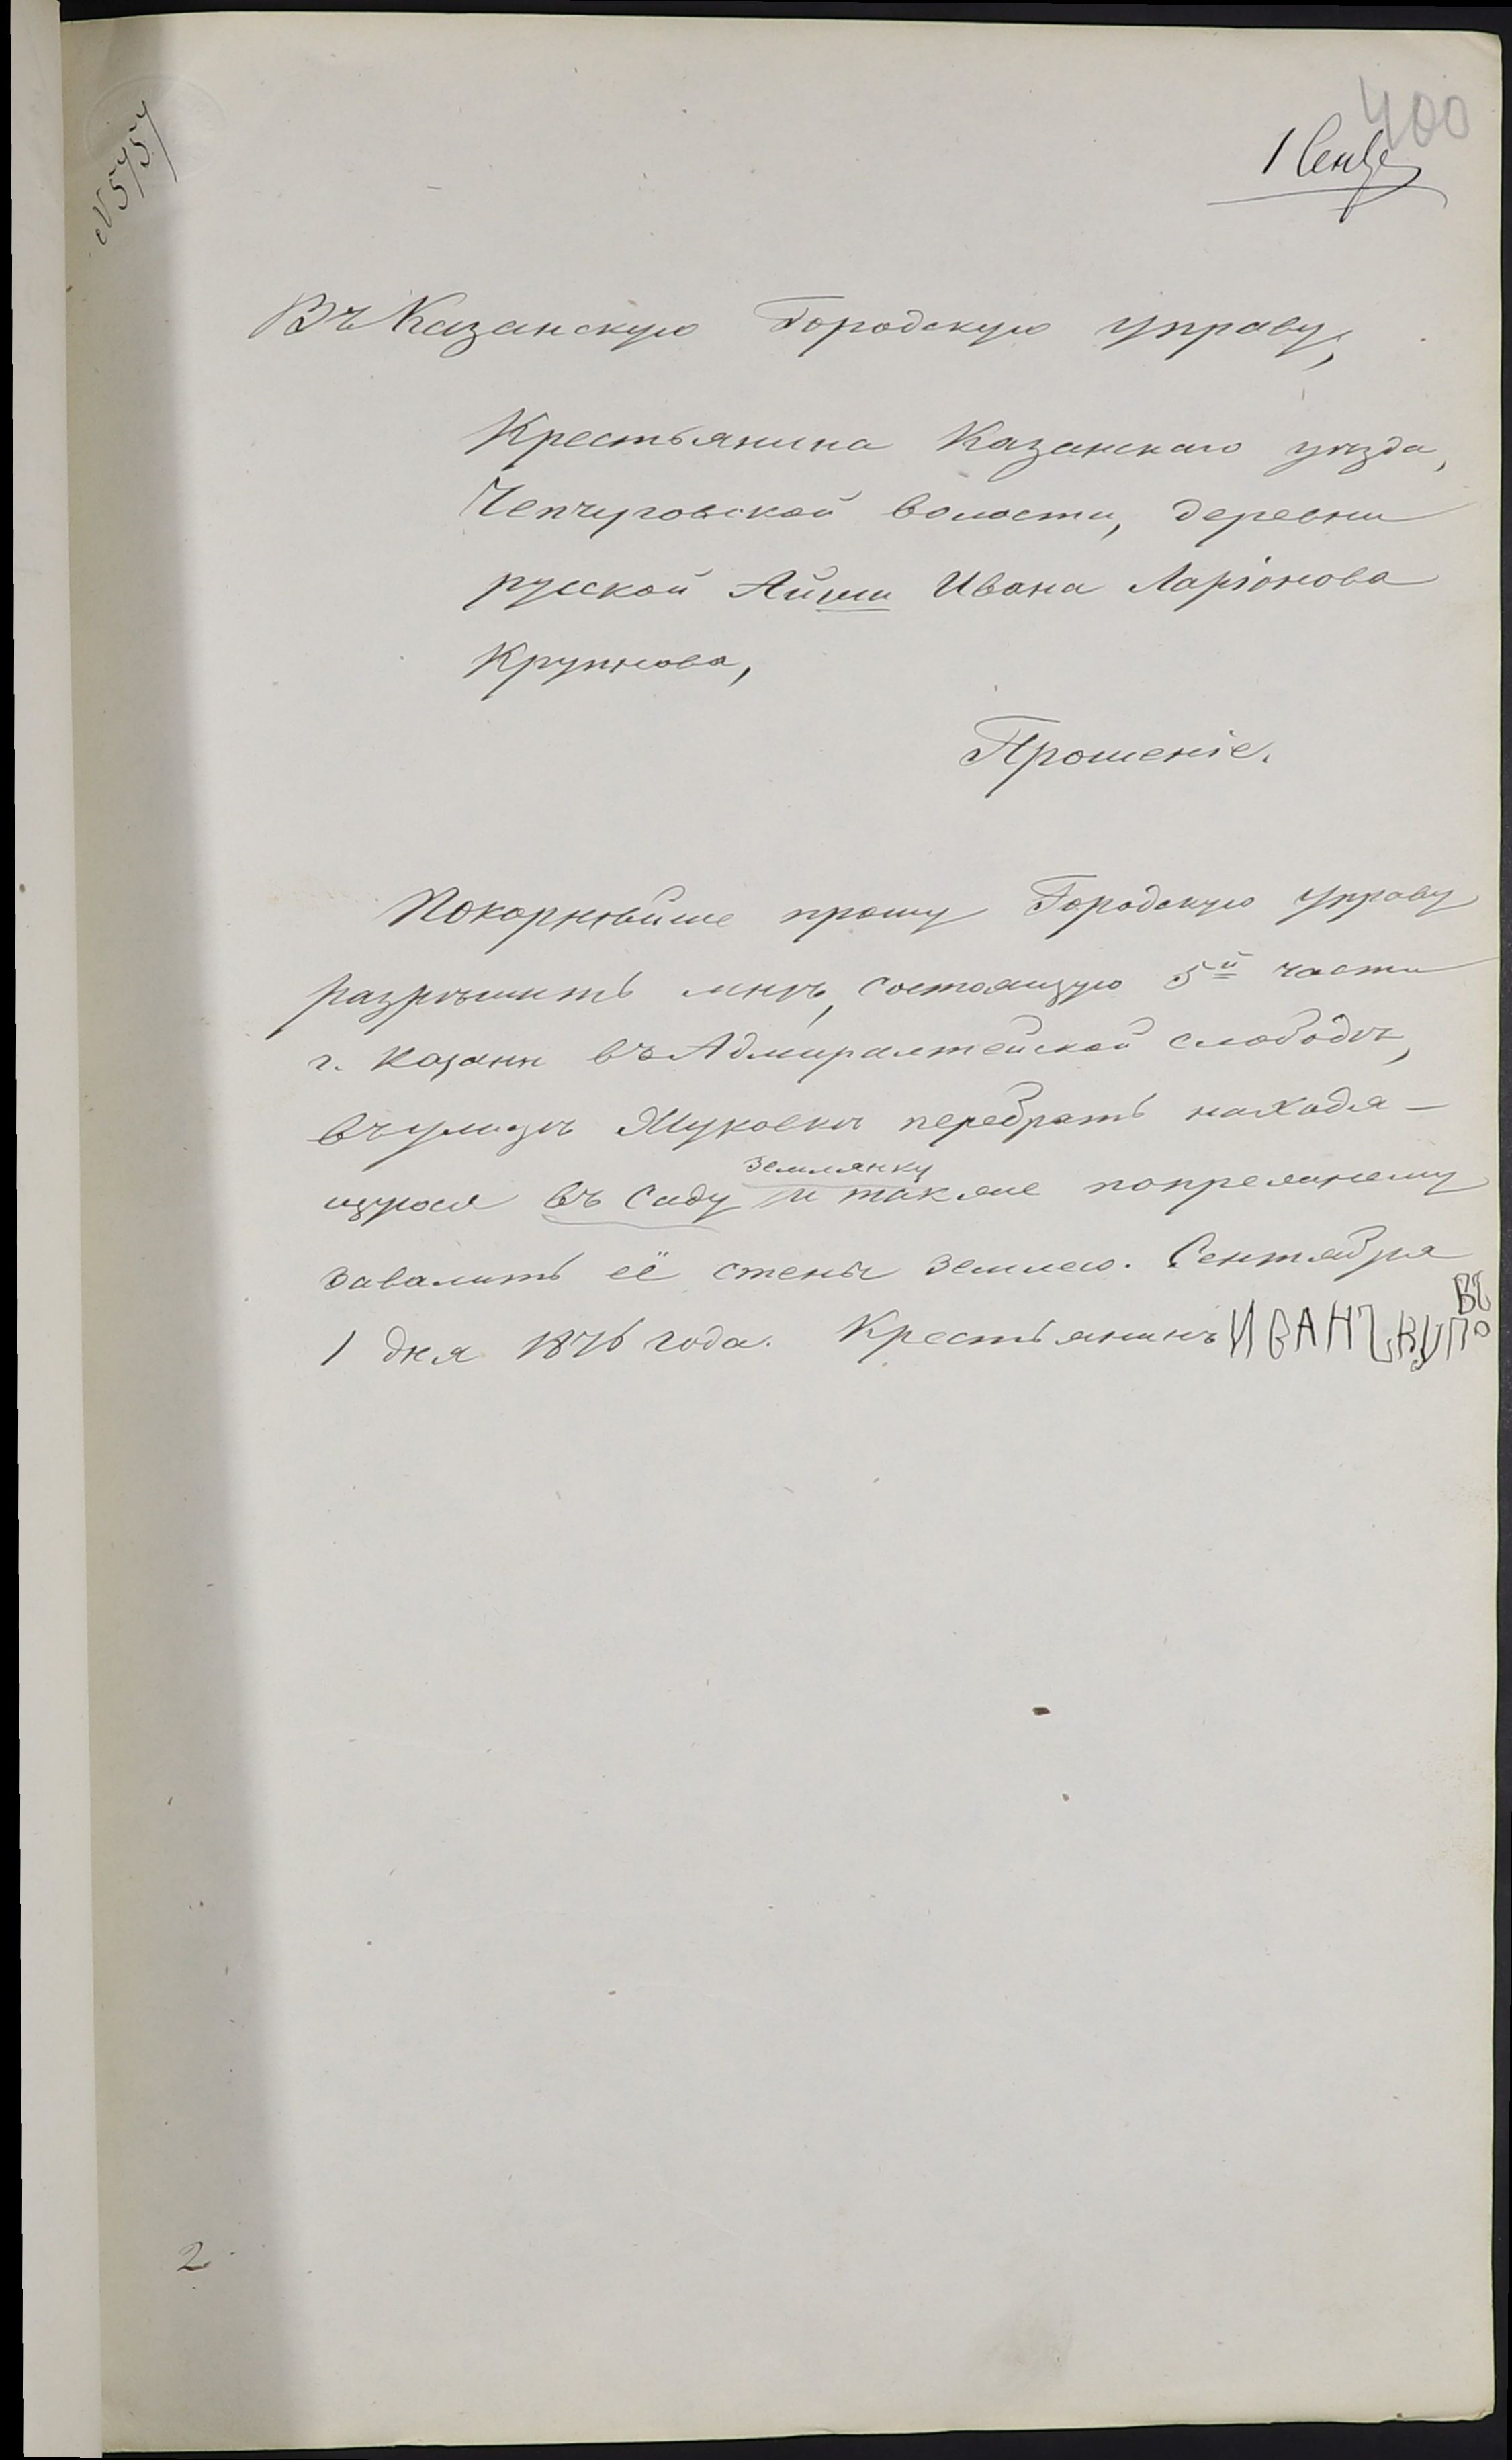 400
1 Сент
№ 5757
Въ Казанскую Городскую управу,
Крестьянина Казанскаго уѣзда,
Чепчуговской волости, деревни
русской Айши Ивана Ларіонова
Крупнова,
Прошеніе.
Покорнѣйше прошу Городскую управу
разрѣшить мнѣ, состоящую 5й части
г. Казани въ Адмиралтейской слободѣ,
въ улицѣ Жуковкѣ перебрать находя-
щуюся въ саду землянку и также попрежнему
завалить её стены землею. Сентября
1 дня 1876 года. Крестьянинъ ИВАНЪ КУПО
ВЪ
2